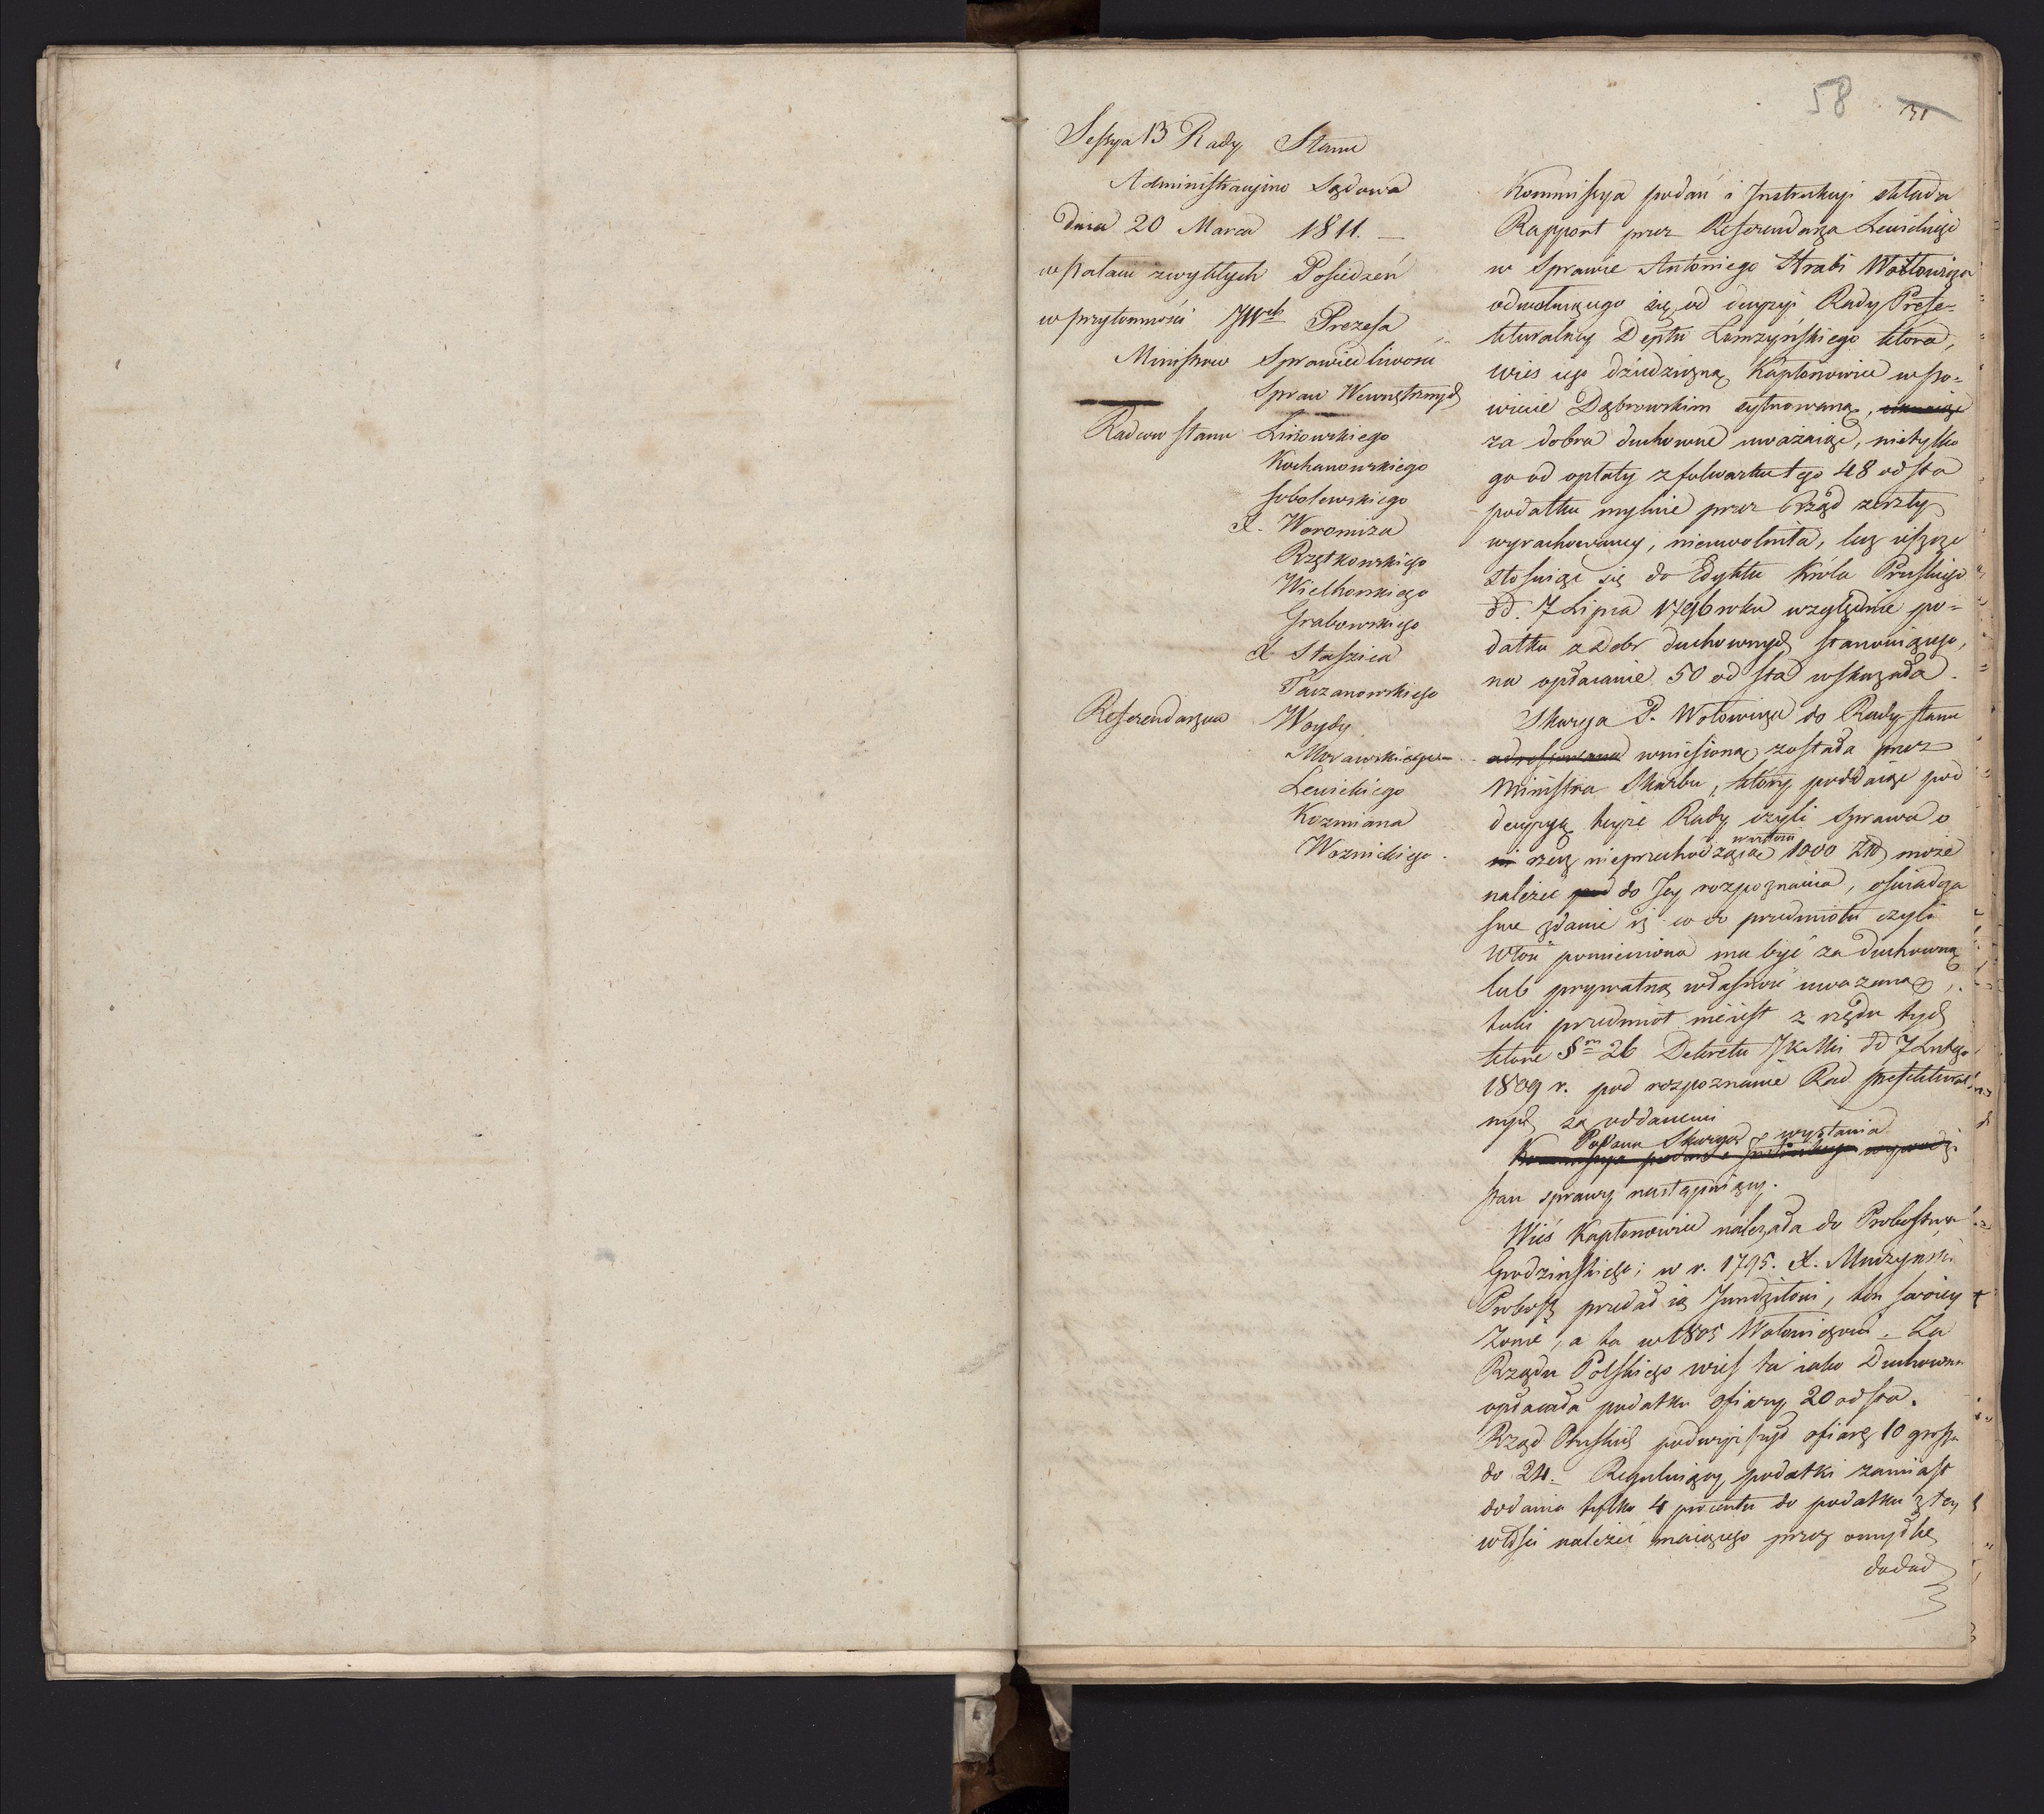 58 31
Sessya 13 Rady Stanu
Administracyino Sądowa
dnia 20 Marca 1811. –
w Pałacu zwykłych Posiedzeń
w przytomności JWch Prezesa
Ministrow Sprawiedliwości
Spraw Wewnętrznych
Radcow stanu Linowskiego
Kochanowskiego
Sobolewskiego
X. Woronicza
Rzętkowskiego
Wielhorskiego
Grabowskiego
X Staszica
Tarzanowskiego
Referendarzow Woydy
Morawskiego
Lewickiego
Kozmiana
Woznickiego.
Kommissya podań i Instrukcyi składa
Rapport przez Referendarza Lewickiego
w Sprawie Antoniego Hrabi Wołłowicza
odwołuiącego się od decyzyi Rady Prefe-
kturalney Deptu Łomzyńskiego która,
wies iego dziedziczną Kapłonowice w Po-
wiecie Dąbrowskim sytuowaną,
za dobra duchowne uważaiąc, nietylko
go od opłaty z folwarku tego 48 od sta
podatku mylnie przez Rząd zeszły
wyrachowaney, nieuwolniła, lecz ieszcze
stosuiąc się do Edyktu Króla Pruskiego
dd. 7 Lipca 1796 roku względnie po-
datku z dobr duchownych stanowiącego,
na opłacanie 50 od sta wskazała.
Skarga P. Wołowicza do Rady stanu
adressowana wniesioną została przez
Ministra Skarbu, który poddaiąc pod
decyzyą teyże Rady czyli sprawa o
wartości
rzecz nieprzechodzącą 1000 Złł może
należeć pod do Jey rozpoznania, oświadcza
swe zdanie iż co do przedmiotu czyli
Włość pomieniona ma być za duchowną
lub prywatną własność uważaną,
taki przedmiot nieiest z rzędu tych
które §m 26 Dekretu JKMci dd 7 Lutego
1809 r. pod rozpoznanie Rad prefektural-
nych są oddanemi
Podana Skarga wystawia
Kommissya podań i Instrukcyi wywodzi
stan sprawy następuiący.
Wieś Kapłonowice należała do Probostwa
Grodzinskiego; w r. 1795. X. Muczynski
Probosz przedał ią Jundziłowi, ten swoiey
Żonie, a ta w 1805 Wołowiczowi. Za
Rządu Polskiego wieś ta iako Duchowna
opłacała podatku ofiary 20 od sta.
Rząd Pruski podwyższył ofiarę 10 grosza
do 24. Reguluiący podatki zamiast
dodania tylko 4 procentu do podatku z tey
włości należeć maiącego przez omyłkę
dodał